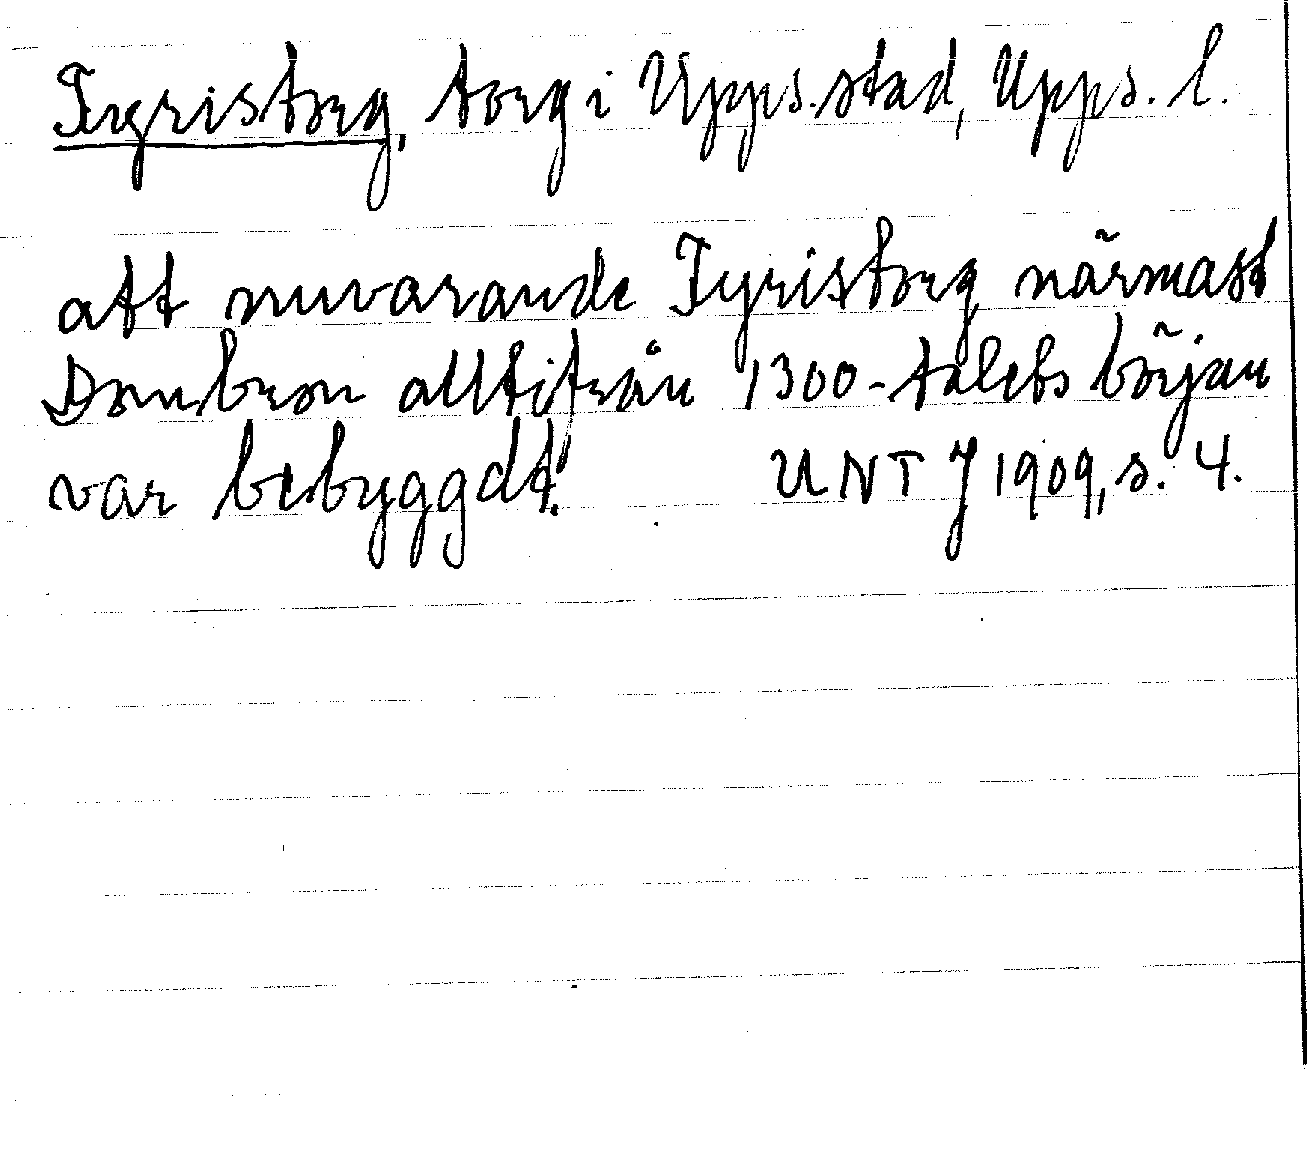 Fyristorg, torg i Upps. stad, Upps. l.
att nuvarande Fyristorg närmast
Dombron alltifrån 1300-talets början
var bebyggdt. UNT J 1909, s. 4.